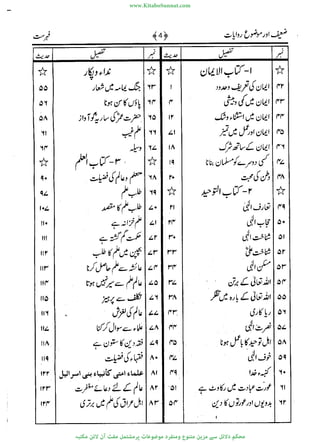 www.KitaboSunnat.com
ضعیف اور موضوع روایات ﴿4﴾ فہرست
نمبر تفصیل حدیث نمبر تفصیل حدیث
☆ ۱- کتاب الایمان ☆ ☆ نداء و پکار ☆
۴۲ ایمان کی تعریف و حدود ۱ ۶۳ جنگ یمامہ میں شعار ۵۵
۴۳ ایمان میں کمی و بیشی ۴ ۶۴ پاؤں کا سن ہونا
۴۴ ایمان میں استثناء و شک ۱۲ ۶۵ حضرت عمرؓ کی ساریہؓ کو آواز ۵۸
۴۵ ایمان اور عمل میں تمیز ۷۱ ۶۶ علم غیب ۶۱
۴۶ ایمان کے ساتھ شرک ۶۷ وسیلہ ۶۴
۴۷ کسی دوسرے کو مسلمان بنانا ۱۹ ☆ ۳- کتاب العلم ☆
وطن کی محبت ۲۰ ۶۸ معلم و عالم کی فضیلت ۹۰
☆ ۲- کتاب التوحید ☆ ۶۹ طلب علم ۹۷
۴۹ تعارف الٰہی ۲۱ ۷۰ طلب علم کا مقصد ۱۰۷
۵۰ حجاب الٰہی ۲۴ ۷۱ علم خزانہ ہے ۱۱۰
۵۱ شناخت الٰہی ۳۰ ۷۲ حکمت گم گشتہ ہے ۱۱۱
۵۲ شناخت علیؓ ۳۳ ۷۳ بچپن میں علم کا طلب ۱۱۲
۵۳ مسکن الٰہی ۷۴ عائشہؓ سے علم حاصل کرنا ۱۱۳
۵۴ اللہ تعالیٰ کے برتن ۳۷ ۷۵ علم سے سیر نہیں ہونا ۱۱۴
۵۵ اللہ تعالیٰ کے بارہ میں تفکر ۳۸ ۷۶ تکلف سے پرہیز ۱۱۵
۵۶ ریا کاری ۴۳ ۷۷ عالم کی لغزش ۱۱۶
۵۷ نصرت الٰہی ۷۸ علماء سے سوال کرنا ۱۱۷
۵۸ اہل توحید کا باعمل ہونا ۴۵ ۷۹ فقہ دین کا ستون ہے
۵۹ خوف الٰہی ۴۷ ۸۰ فقہاء کی فضیلت ۱۱۹
۶۰ کتبہ خدا علماء امتی کأنبیاء بنی اسرائیل ۱۲۲
۶۱ عورت عبادت میں رکاوٹ ہے ۵۱ ۸۲ عالم کے لئے دعائے مغفرت ۱۲۳
۶۲ بدویوں اور عورتوں کا دین ۵۴ اہل عراق کی علم میں برتری ۱۲۴
محکم دلائل سے مزین متنوع ومنفرد موضوعات پرمشتمل مفت آن لائن مکتبہ